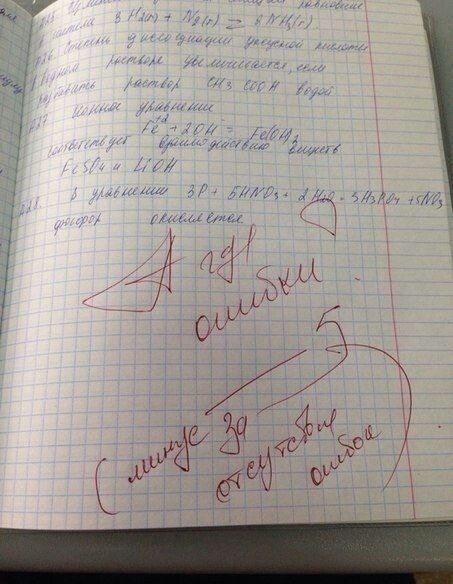 3H2(г) + N2(г) ⇄ 2NH3(г).
А26 Степень диссоциации уксусной кислоты
в водном растворе увеличивается, если
разбавить раствор CH3COOH водой
А27 Ионное уравнение
Fe+2 + 2OH- = Fe(OH)2
соответствует взаимодействию веществ
FeSO4 и LiOH
А28. В уравнении 3P + 5HNO3 + 2H2O = 3H3PO4 + 5NO
фосфор окисляется
А где
ошибки
5
(минус за
отсутствие
ошибок